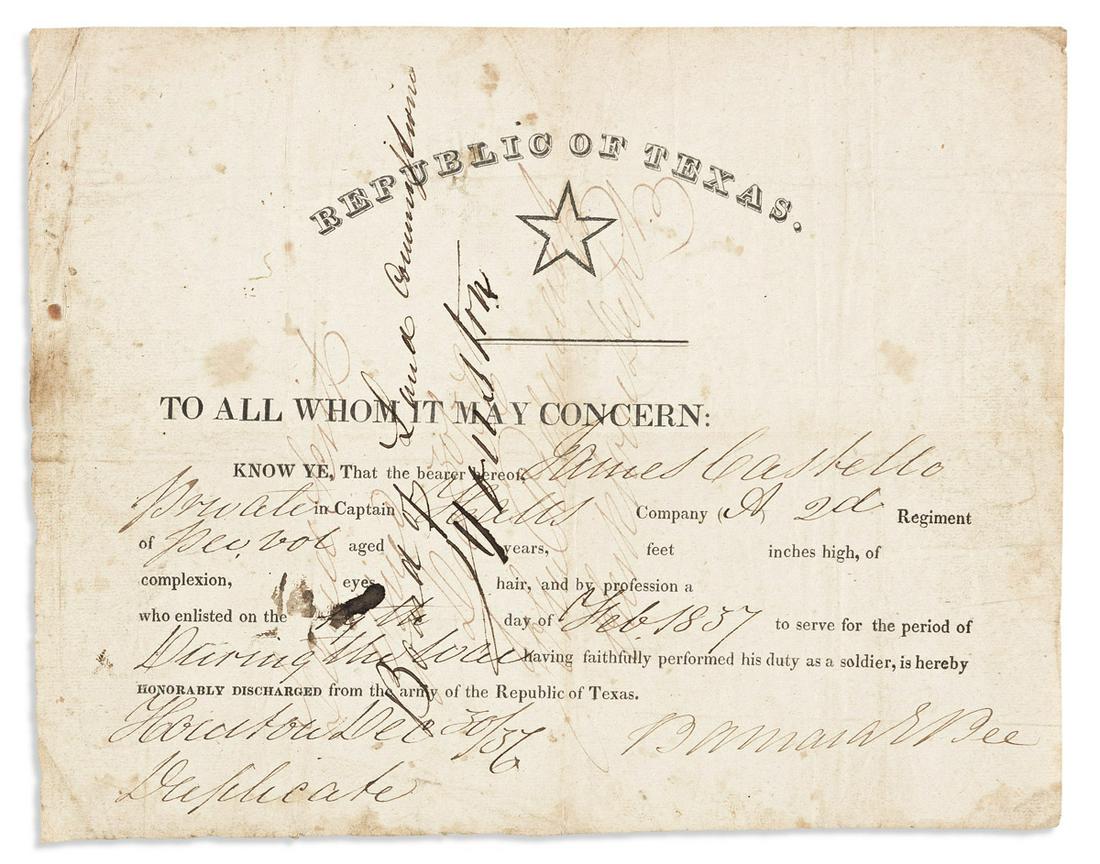 REPUBLIC OF TEXAS.
TO ALL WHOM IT MAY CONCERN:
KNOW YE, That the bearer hereof, James Castello
Private in Captain Halls Company (A) 2d Regiment
of Per. vol aged years, feet inches high, of
complexion, eyes hair, and by profession a
who enlisted on the day of Feb. 1837 to serve for the period of
During the war having faithfully performed his duty as a soldier, is hereby
HONORABLY DISCHARGED from the army of the Republic of Texas.
Houston Dec 30/37 Barnard E Bee
Duplicate
Board of Land Commissions
Houston